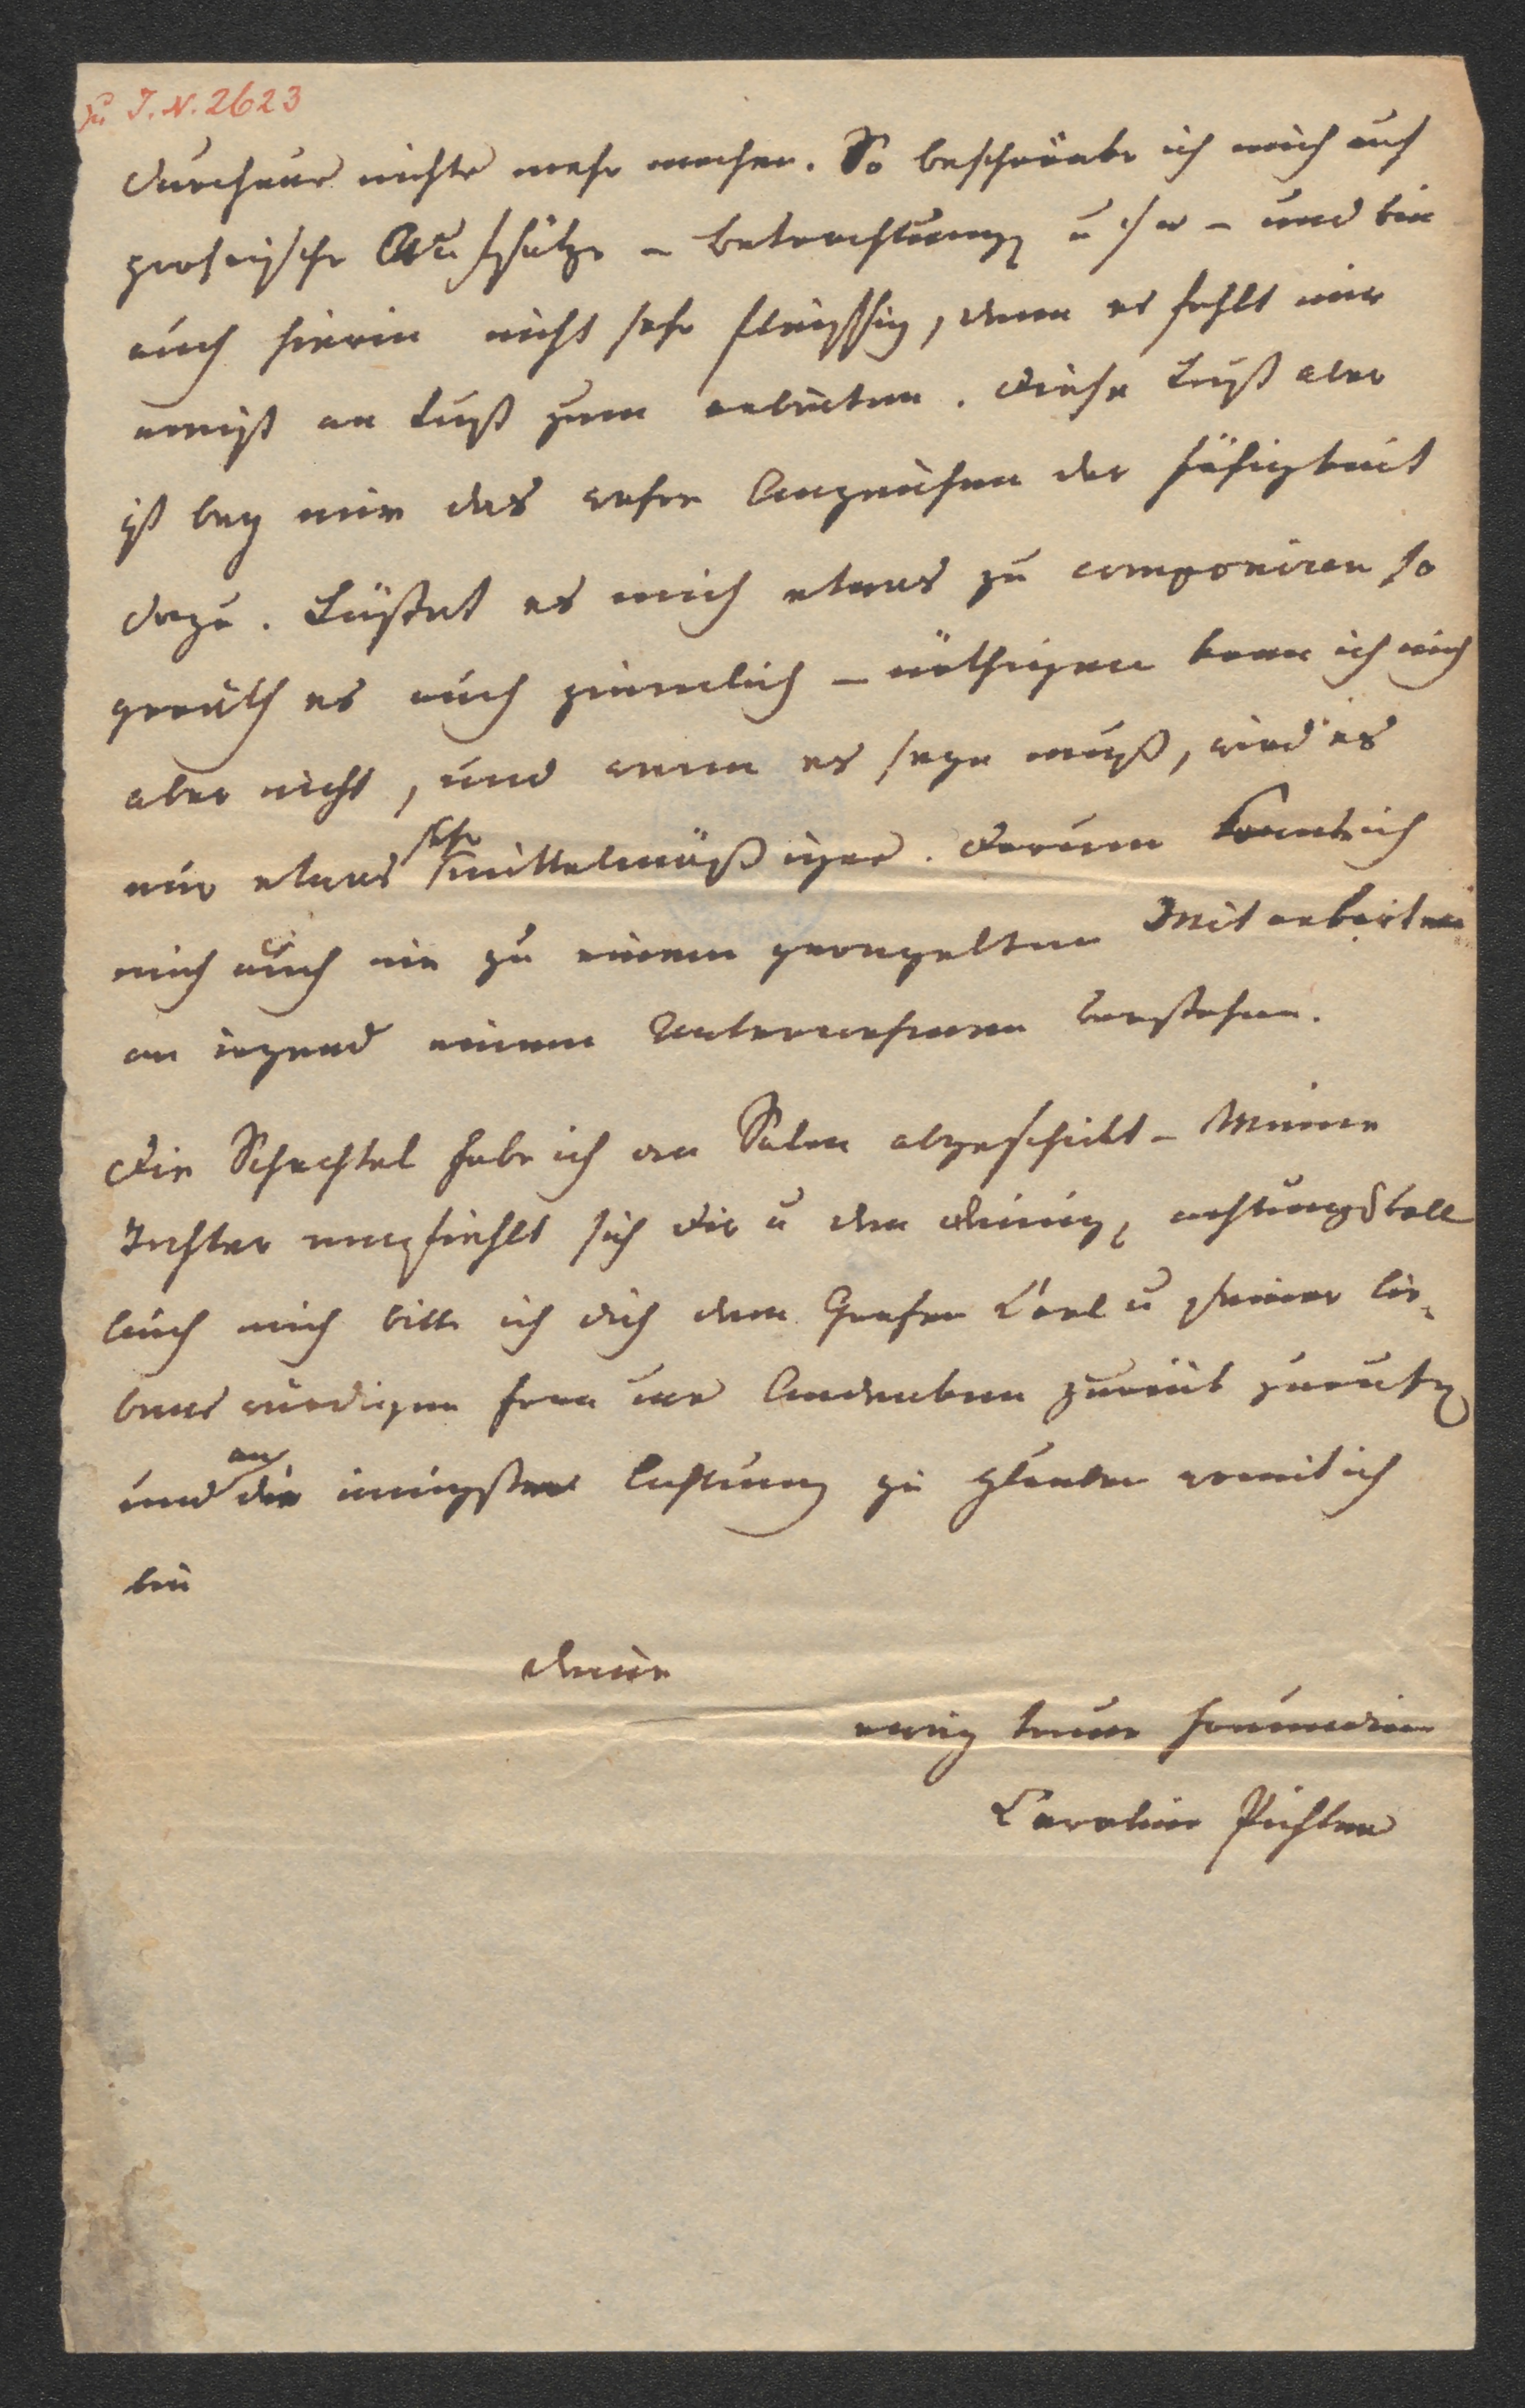 Zu I.N. 2623
durchaus nichts mehr machen. So beschränke ich mich auf
prosaische Aufsätze – Betrachtungen u s w – und bin
auch hierin nicht sehr fleissig, denn es fehlt mir
meist an Lust zum arbeiten. Diese Lust aber
ist bey mir das wahre Anzeichen der Fähigkeit
dazu. Lüstet es mich etwas zu componiren so
geräth es auch ziemlich – nöthigen kann ich mich
aber nicht, und wenn es seyn muß, wird es
nur etwas sehr mittelmäßiges. Darum konnte ich
mich auch nie zu einem geregelten Mitarbeiten
an irgend einem Unternehmen verstehen.
Die Schachtel habe ich an Salm abgeschickt – Meine
Tochter empfiehlt sich dir u den deinigen, achtungsvoll
Auch mich bitte ich dich dem Grafen Carl u seiner lie-
benswürdigen Frau ins Andenken zurück zurufen
und an die innigste Achtung zu glauben womit ich
bin
deine
ewig treue Freundinn
Caroline Pichler